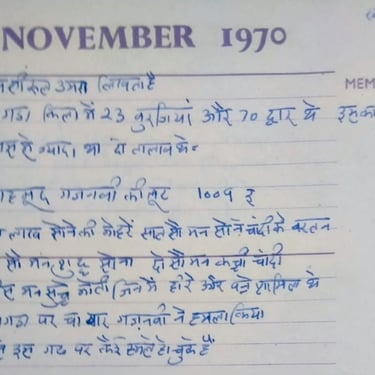 NOVEMBER 1970
लिखता है
MEM
किला में 23 बुरजियां और 70 द्वार थे इसका
से ज्यादा था दो तालाब थे।
गजनवी की लूट 1009 ई
लाख सोने की मोहरें सात सौ मन सोने चांदी के बरतन
सौ मन शुद्ध सोना दो सौ मन कच्ची चांदी
मन सुच्चे मोती जिनमें हीरे और पन्ने शामिल थे
पर चा बार गजनवी ने हमला किया
इस गढ़ पर कई हमले हो चुके हैं